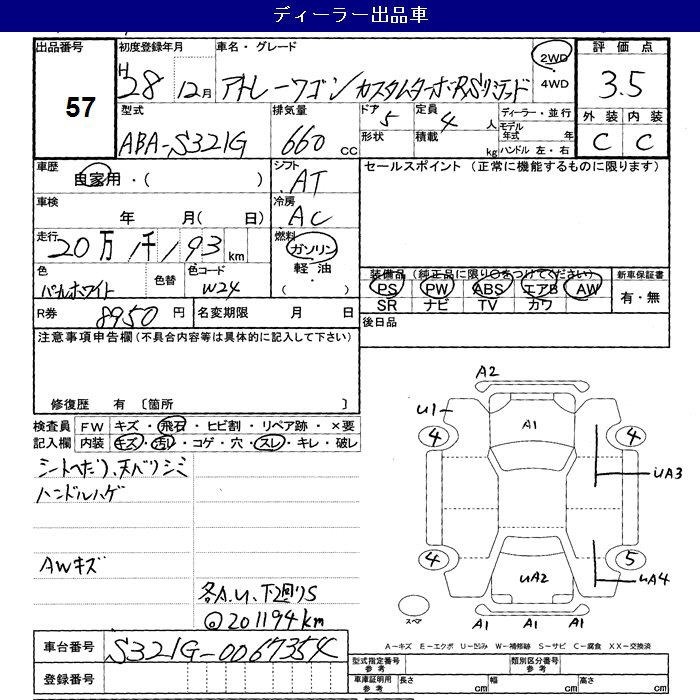 ディーラー出品車
出品番号 初度登録年月 車名・グレード 2WD ・ 4WD 評価点
57 H28 12月 アトレーワゴン カスタムターボRSリミテッド 3.5
型式 排気量 ドア 定員 ディーラー・並行 外装 内装
ABA-S321G 660 CC 5 4 人 モデル年式 年 C C
形状 積載 kg ハンドル 左・右
車歴 自家用・( ) シフト AT セールスポイント (正常に機能するものに限ります)
車検 年 月( 日) 冷房 AC
走行 20万1千193 km 燃料 ガソリン 軽油・( )
色 パールホワイト 色替 色コード W24
装備品 (純正品に限り○をつけてください) 新車保証書
PS PW ABS エアB AW 有・無
SR ナビ TV カワ
R券 8950 円 名変期限 月 日 後日品
注意事項申告欄(不具合内容等は具体的に記入して下さい)
修復歴 有 〔箇所 〕
検査員 FW キズ・飛石・ヒビ割・リペア跡・×要
記入欄 内装 キズ・汚れ・コゲ・穴・スレ・キレ・破レ
シートへたり、天バリシミ
ハンドルハゲ
AWキズ
各A.U、下廻りS
@201194km
A2
U1 A1
4 4
UA3
4 5
UA2 UA4
スペア A1 A1 A1
A-キズ E-エクボ U-凹み W-補修跡 S-サビ C-腐食 XX-交換済
車台番号 S321G-0067354
登録番号
型式指定番号 参考 類別区分番号 参考
車庫証明用 参考 長さ cm 幅 cm 高さ cm